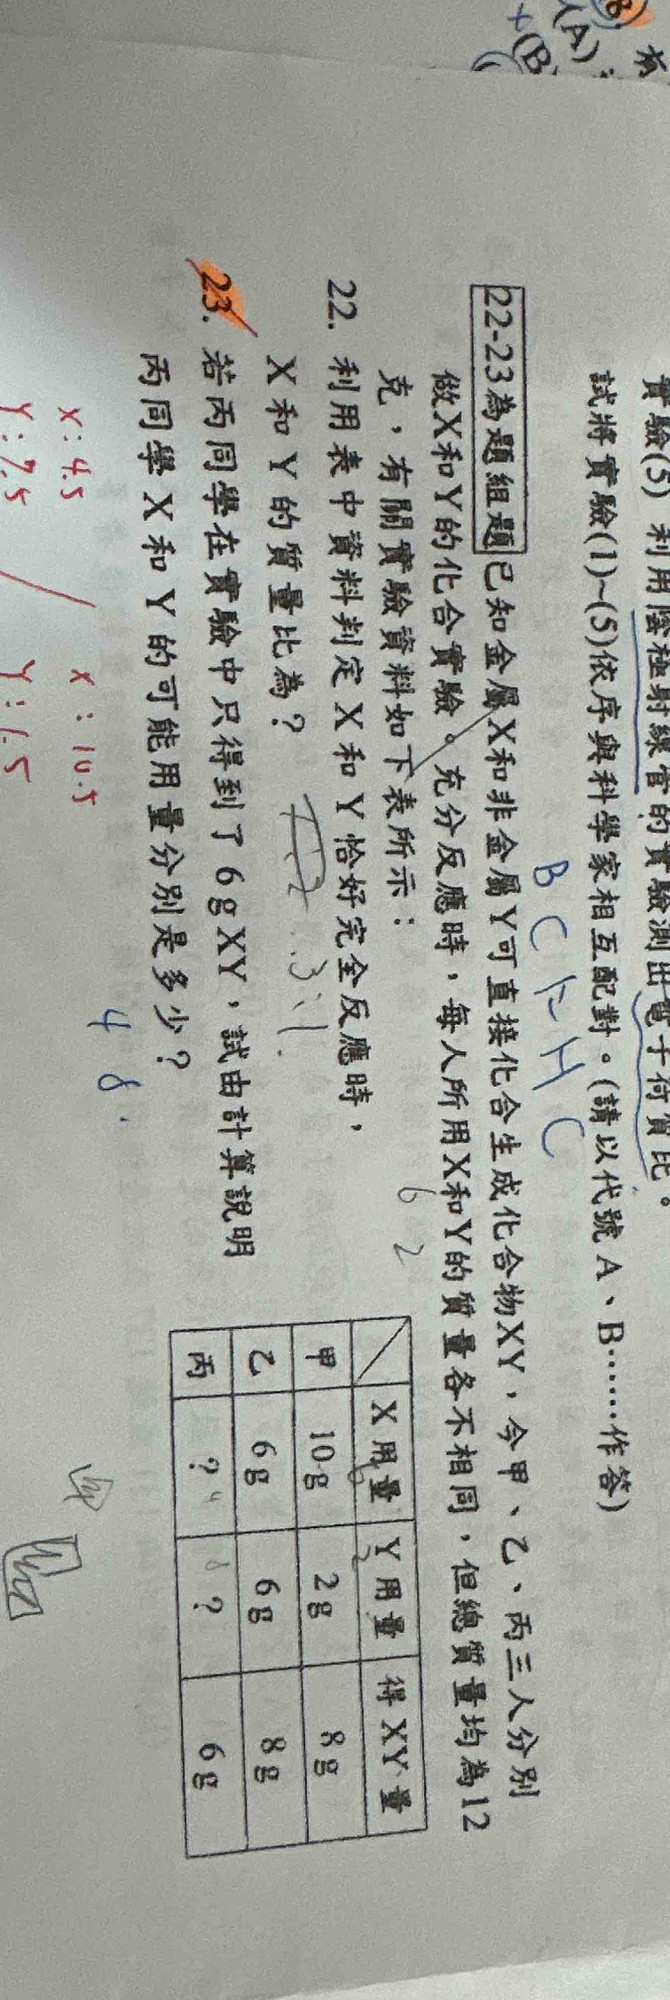 (B)
有
(A)
(B
實驗(5) 利用陰極射線管的實驗測出電子荷質比。
試將實驗(1)~(5)依序與科學家相互配對。(請以代號A、B……作答)
B C H C
22-23為題組題 已知金屬X和非金屬Y可直接化合生成化合物XY,今甲、乙、丙三人分別
做X和Y的化合實驗。充分反應時,每人所用X和Y的質量各不相同,但總質量均為12
克,有關實驗資料如下表所示:
6 2
22. 利用表中資料判定X和Y恰好完全反應時,
X和Y的質量比為?
3:1.
23. 若丙同學在實驗中只得到了6gXY,試由計算說明
丙同學X和Y的可能用量分別是多少?
4 8.
X用量 Y用量 得XY量
甲 10g 2g 8g
乙 6g 6g 8g
丙 ? ? 6g
X:4.5 X:10.5
Y:7.5 Y:1.5